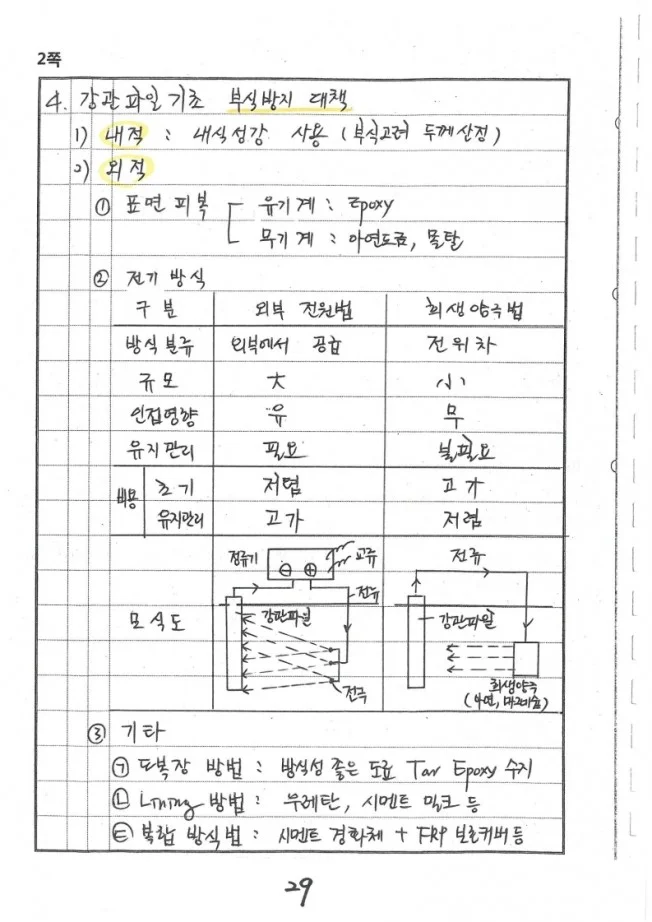 2쪽
4. 강관파일기초 부식방지 대책
1) 내적 : 내식성강 사용 (부식고려 두께산정)
2) 외적
① 표면피복 유기계 : Epoxy
무기계 : 아연도금, 몰탈
② 전기방식
구분 외부 전원법 희생양극법
방식분류 외부에서 공급 전위차
규모 大 小
인접영향 유 무
유지관리 필요 불필요
비용 초기 저렴 고가
유지관리 고가 저렴
모식도
정류기 ⊖ ⊕ 교류
전류
강관파일
전극
전류
강관파일
희생양극
(아연, 마그네슘)
③ 기타
㉠ 도복장 방법 : 방식성 좋은 도료 Tar Epoxy 수지
㉡ Lining 방법 : 우레탄, 시멘트 밀크 등
㉢ 복합 방식법 : 시멘트 경화체 + FRP 보호커버 등
29